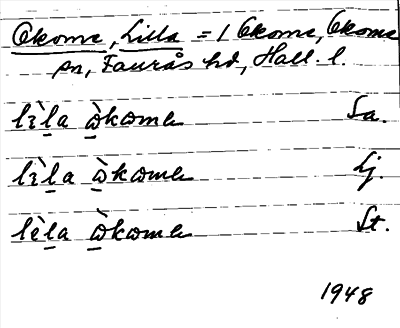 Okome, Lilla = 1 Okome, Okome
sn, Faurås hd, Hall. l.
lɩ̀la ὼkωmə Sa.
lɩ̀la ὼkωmə Lj.
lèla ὼkωmə St.
1948